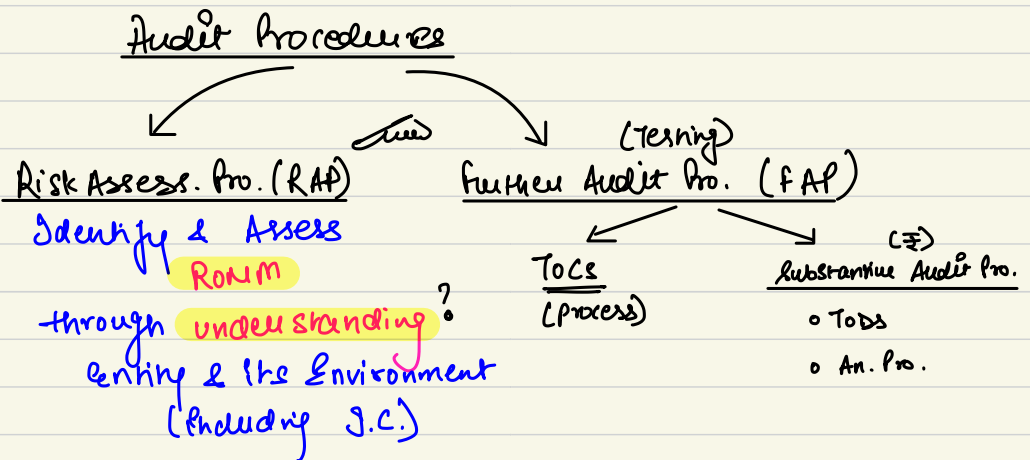 Audit Procedures
Risk Assess. Pro. (RAP)
Identify & Assess
RoMM
through understanding ?
Entity & Its Environment
(Including I.C.)
(Testing)
Further Audit Pro. (FAP)
TOCs
(Process)
(₹)
Substantive Audit Pro.
• TODs
• An. Pro.